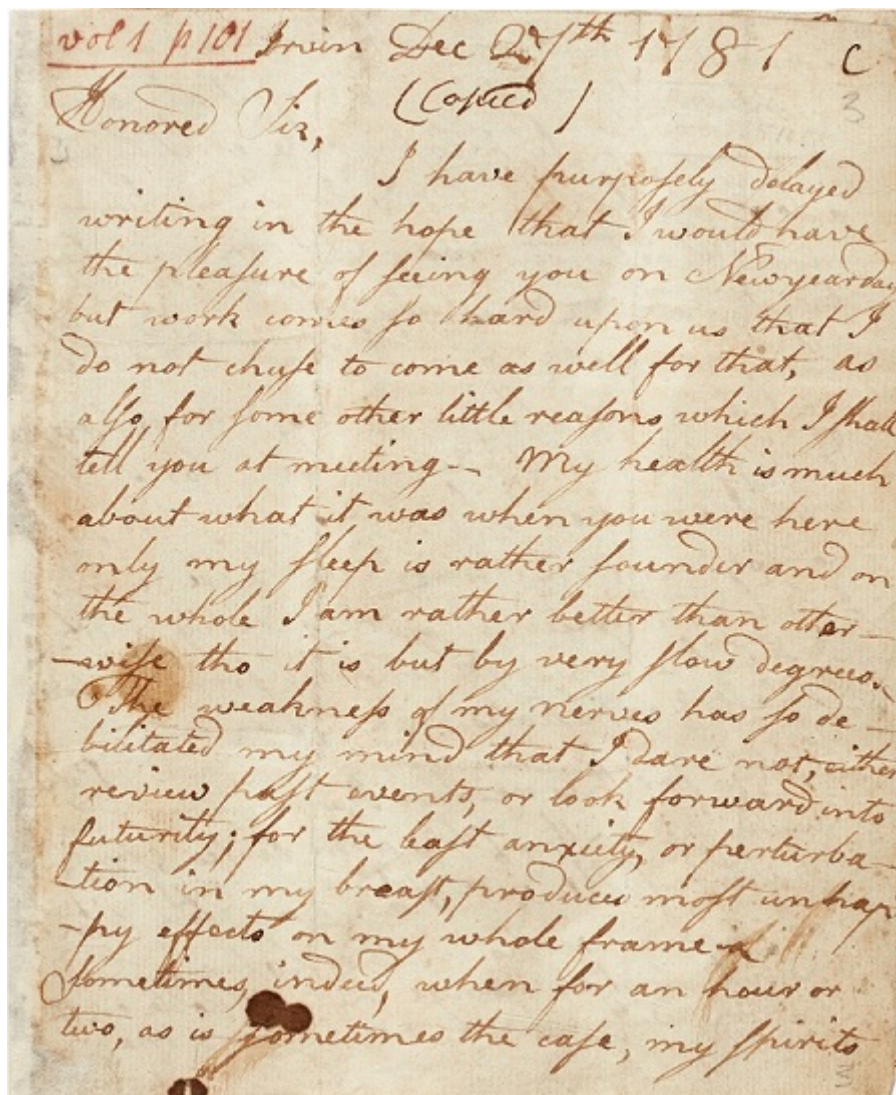 vol 1 p 101 Irwin Dec 27th 1781 C
(Copied) 3
Honored Sir,
I have purpoſely delayed
writing in the hope that I would have
the pleaſure of ſeeing you on Newyearday
but work comes ſo hard upon us that I
do not chuſe to come as well for that, as
alſo for ſome other little reaſons which I ſhall
tell you at meeting-- My health is much
about what it was when you were here
only my ſleep is rather ſounder and on
the whole I am rather better than other-
-wiſe tho it is but by very ſlow degrees.
The weakneſs of my nerves has ſo de-
bilitated my mind that I dare not, either
review paſt events, or look forward into
futurity; for the leaſt anxiety, or perturba-
-tion in my breaſt, produces moſt unhap
-py effects on my whole frame-
Sometimes, indeed, when for an hour or
two, as is ſometimes the caſe, my ſpirits